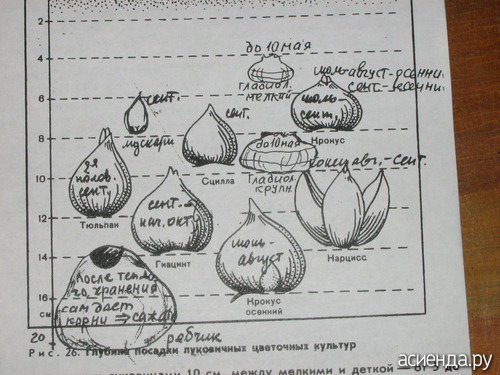 2
до 10 мая
4
июль-август-осенний
сент.-весенний
гладиол.
мелкий
6
сент.
июль-
сент.
сент.
Крокус
8
мускари
до 10 мая
2я
полов.
сент.
Сцилла
Гладиол.
крупн.
конец авг.-сент.
10
12
Тюльпан
сент.-
нач. окт.
июль-
август
14
Гиацинт
Нарцисс
После
хранения
сам дает
корни ⇒ сажа
16
см
Крокус
осенний
20
рябчик
Рис. 26. Глубина посадки луковичных цветочных культур
10 см, между мелкими и деткой — от 5 до
асиенда.ру